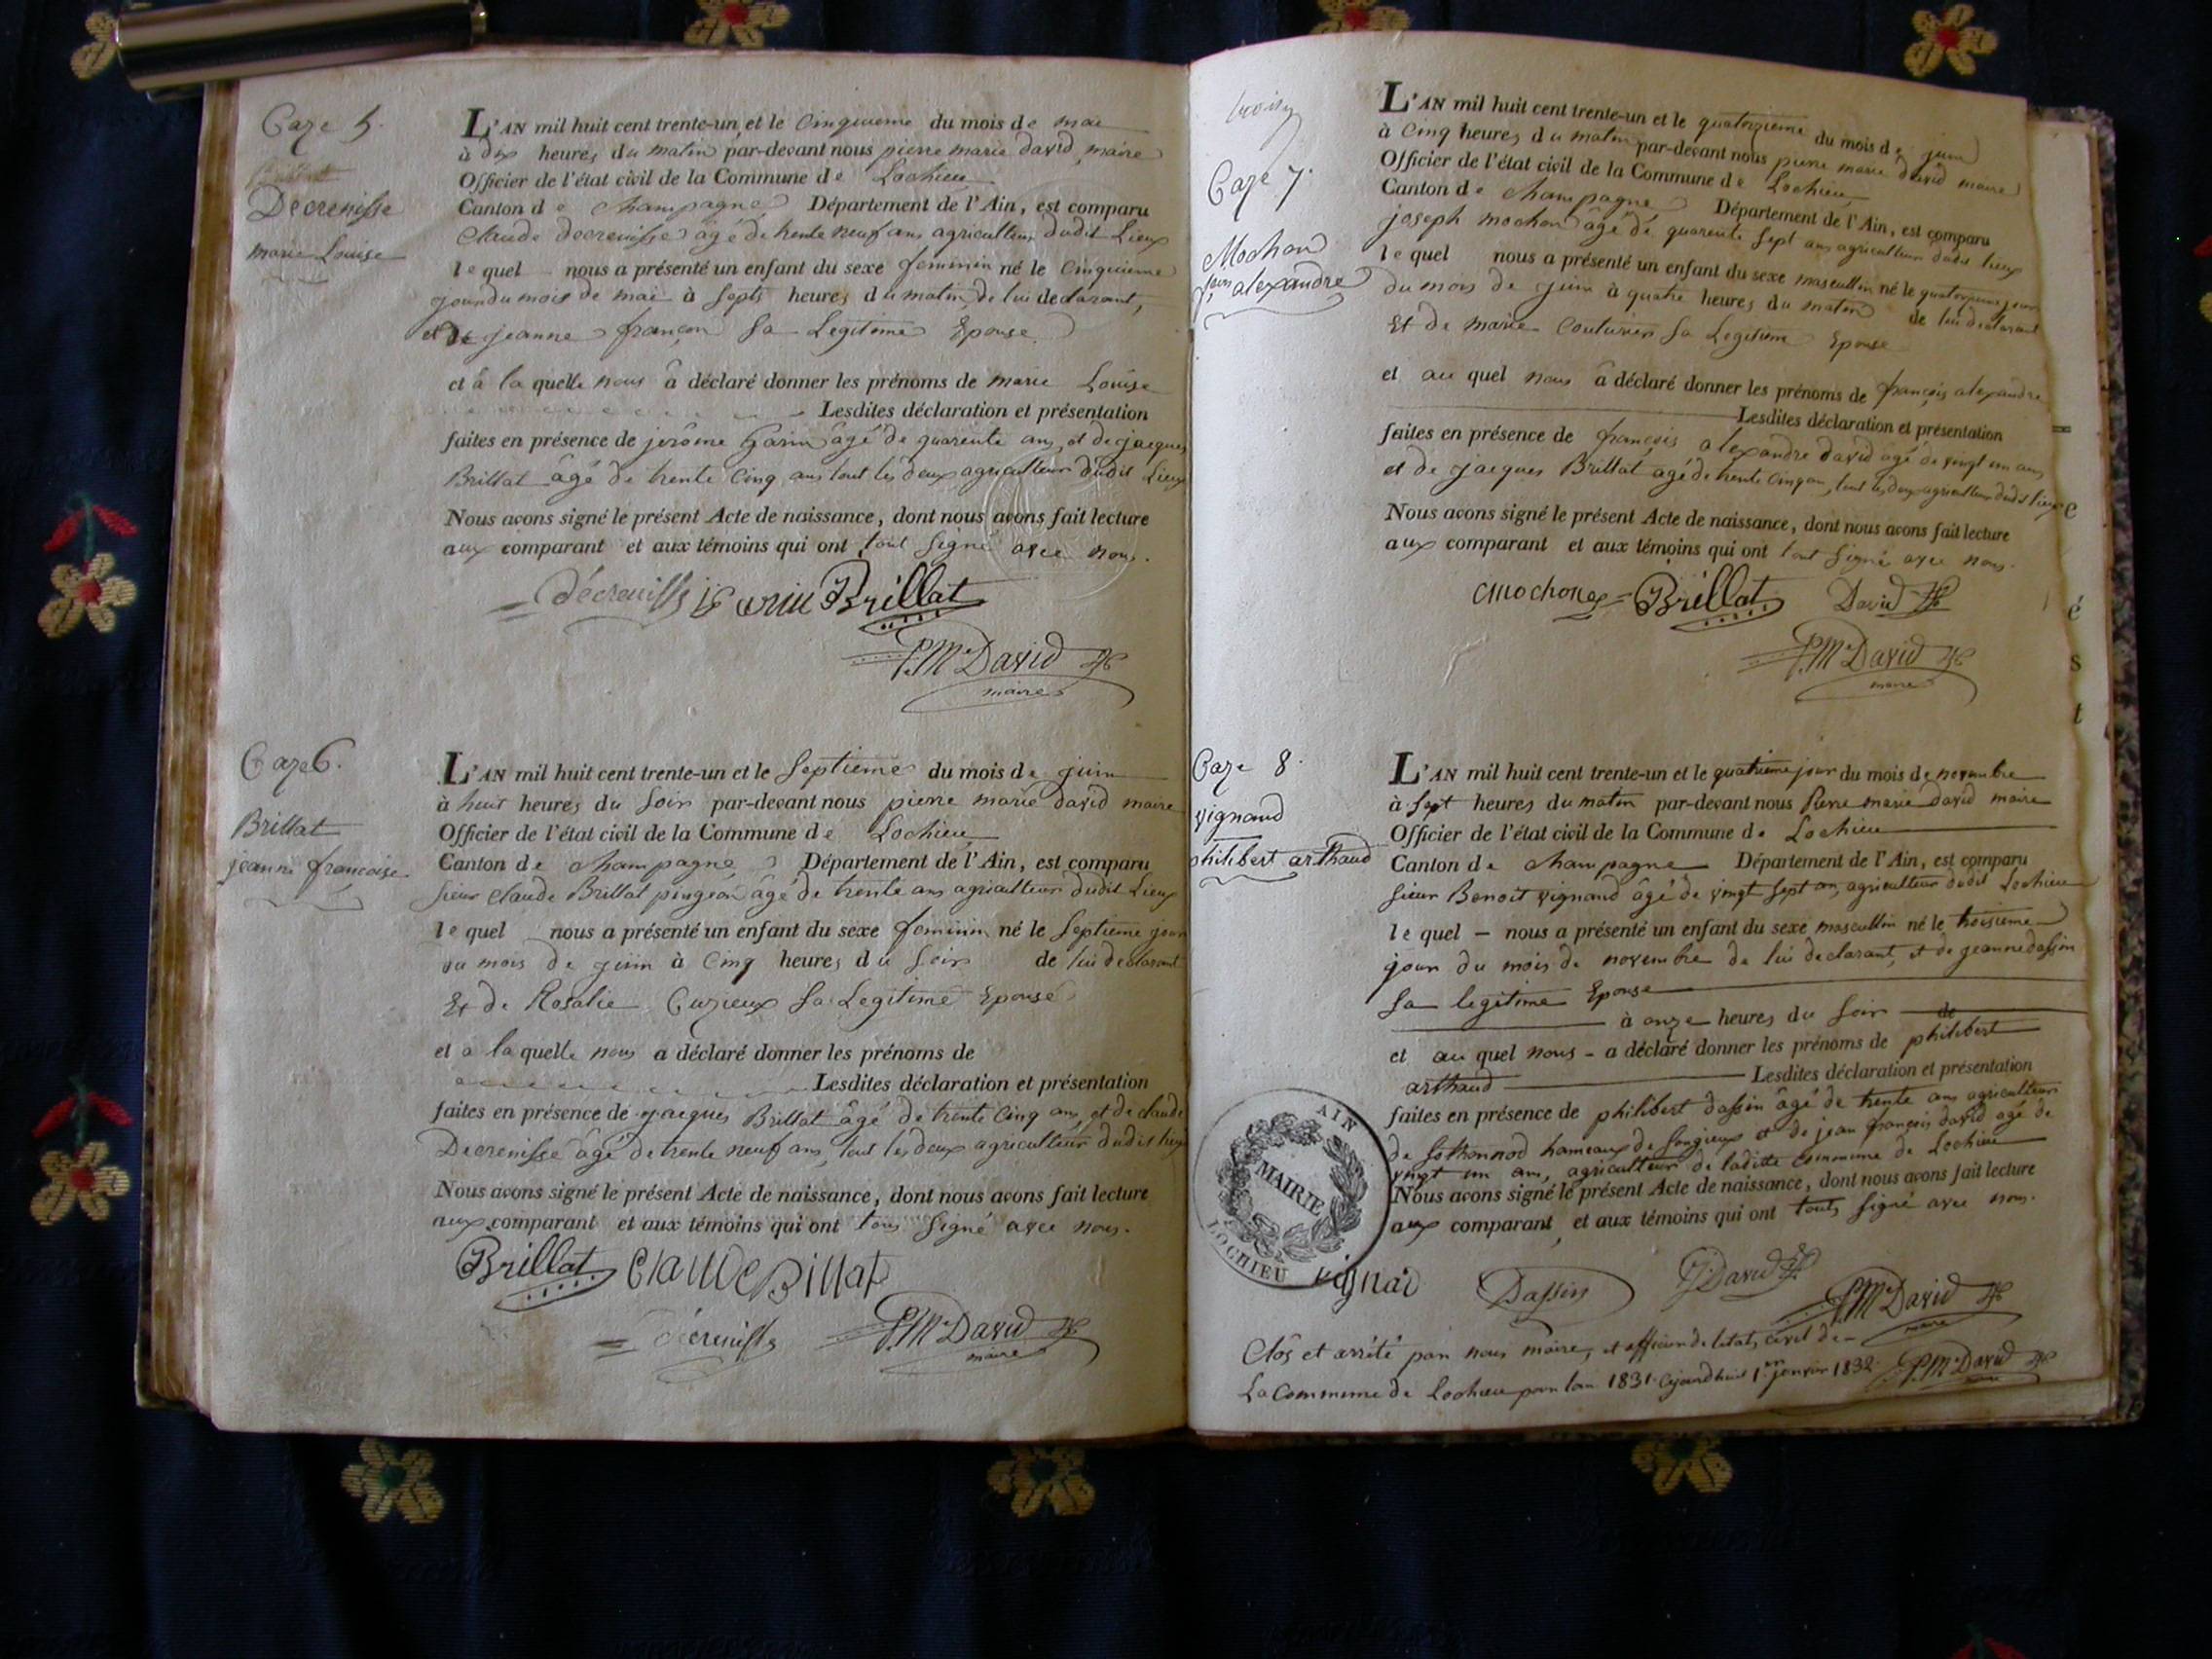 Caze 5.
Decrenisse
marie Louise
L'AN mil huit cent trente-un et le Cinquieme du mois de mai
à dix heures du matin par-devant nous pierre marie david maire
Officier de l'état civil de la Commune de Lochieu
Canton de Champagne Département de l'Ain, est comparu
Claude decrenisse agé de trente neuf ans agriculteur dudit Lieux
le quel nous a présenté un enfant du sexe feminin né le Cinquieme
jour du mois de mai à Septs heures du matin de lui declarant,
et de jeanne françon Sa Legitime Epouse
et à la quelle nous à déclaré donner les prénoms de marie Louise
Lesdites déclaration et présentation
faites en présence de jerôme Garin âgé de quarente ans, et de jacques
Brillat âgé de trente Cinq ans tout les deux agriculteur dudit Lieux
Nous avons signé le présent Acte de naissance, dont nous avons fait lecture
aux comparant et aux témoins qui ont tout Signé avec nous.
décrenisse Brillat
P. Me David
maire
Caze 6.
Brillat
jeanne francoise
L'AN mil huit cent trente-un et le Septieme du mois de juin
à huit heures du Soir par-devant nous pierre marie david maire
Officier de l'état civil de la Commune de Lochieu
Canton de Champagne Département de l'Ain, est comparu
Sieur Claude Brillat pingeon âgé de trente ans agriculteur dudit Lieux
le quel nous a présenté un enfant du sexe feminin né le Septieme jour
du mois de juin à Cinq heures du Soir de lui declarant
Et de Rosalie Cuzieux Sa Legitime Epouse
et a la quelle nous a déclaré donner les prénoms de
Lesdites déclaration et présentation
faites en présence de jacques Brillat âgé de trente Cinq ans, et de claude
Decrenisse âgé de trente neuf ans, tout les deux agriculteur dudit lieux
Nous avons signé le présent Acte de naissance, dont nous avons fait lecture
aux comparant et aux témoins qui ont tous Signé avec nous.
Brillat Claude Billat
décrenisse P. Me David
maire
Caze 7.
Mochon
fçois alexandre
L'AN mil huit cent trente-un et le quatorzieme du mois de juin
à Cinq heures du matin par-devant nous pierre marie david maire
Officier de l'état civil de la Commune de Lochieu
Canton de Champagne Département de l'Ain, est comparu
joseph mochon âgé de quarente Sept ans agriculteur dudit lieux
le quel nous a présenté un enfant du sexe mascullin né le quatorzieme jour
du mois de juin à quatre heures du matin de lui declarant
Et de marie Couturier Sa Legitime Epouse
et au quel nous à déclaré donner les prénoms de françois alexandre
Lesdites déclaration et présentation
faites en présence de françois alexandre david agé de vingt un ans
et de jacques Brillat agé de trente Cinq ans, tout les deux agriculteur dudit lieux
Nous avons signé le présent Acte de naissance, dont nous avons fait lecture
aux comparant et aux témoins qui ont tout Signé avec nous.
Mochon Brillat David
P. Me David
maire
é
s
t
Caze 8.
vignand
philibert arthaud
L'AN mil huit cent trente-un et le quatrieme jour du mois de novembre
à Sept heures du matin par-devant nous Pierre marie david maire
Officier de l'état civil de la Commune de Lochieu
Canton de Champagne Département de l'Ain, est comparu
Sieur Benoit vignand âgé de vingt Sept ans, agriculteur dudit Lochieu
le quel nous a présenté un enfant du sexe mascullin né le troisieme
jour du mois de novembre de lui declarant, et de jeanne dassin
Sa legitime Epouse
à onze heures du Soir de
et au quel nous a déclaré donner les prénoms de philibert
arthaud Lesdites déclaration et présentation
faites en présence de philibert dassin âgé de trente ans agriculteur
de Sothonnod hameaux de Songieux et de jean françois david agé de
vingt un ans, agriculteur de laditte Commune de Lochieu
Nous avons signé le présent Acte de naissance, dont nous avons fait lecture
aux comparant et aux témoins qui ont touts Signé avec nous.
AIN
MAIRIE
LOCHIEU
vignad Dassin David P. Me David
maire
Clôs et arrêté par nous maire, et officier de letat, civil de
La Commune de Lochieu pour lan 1831. Cejourdhui 1er janvier 1832. P. Me David
maire